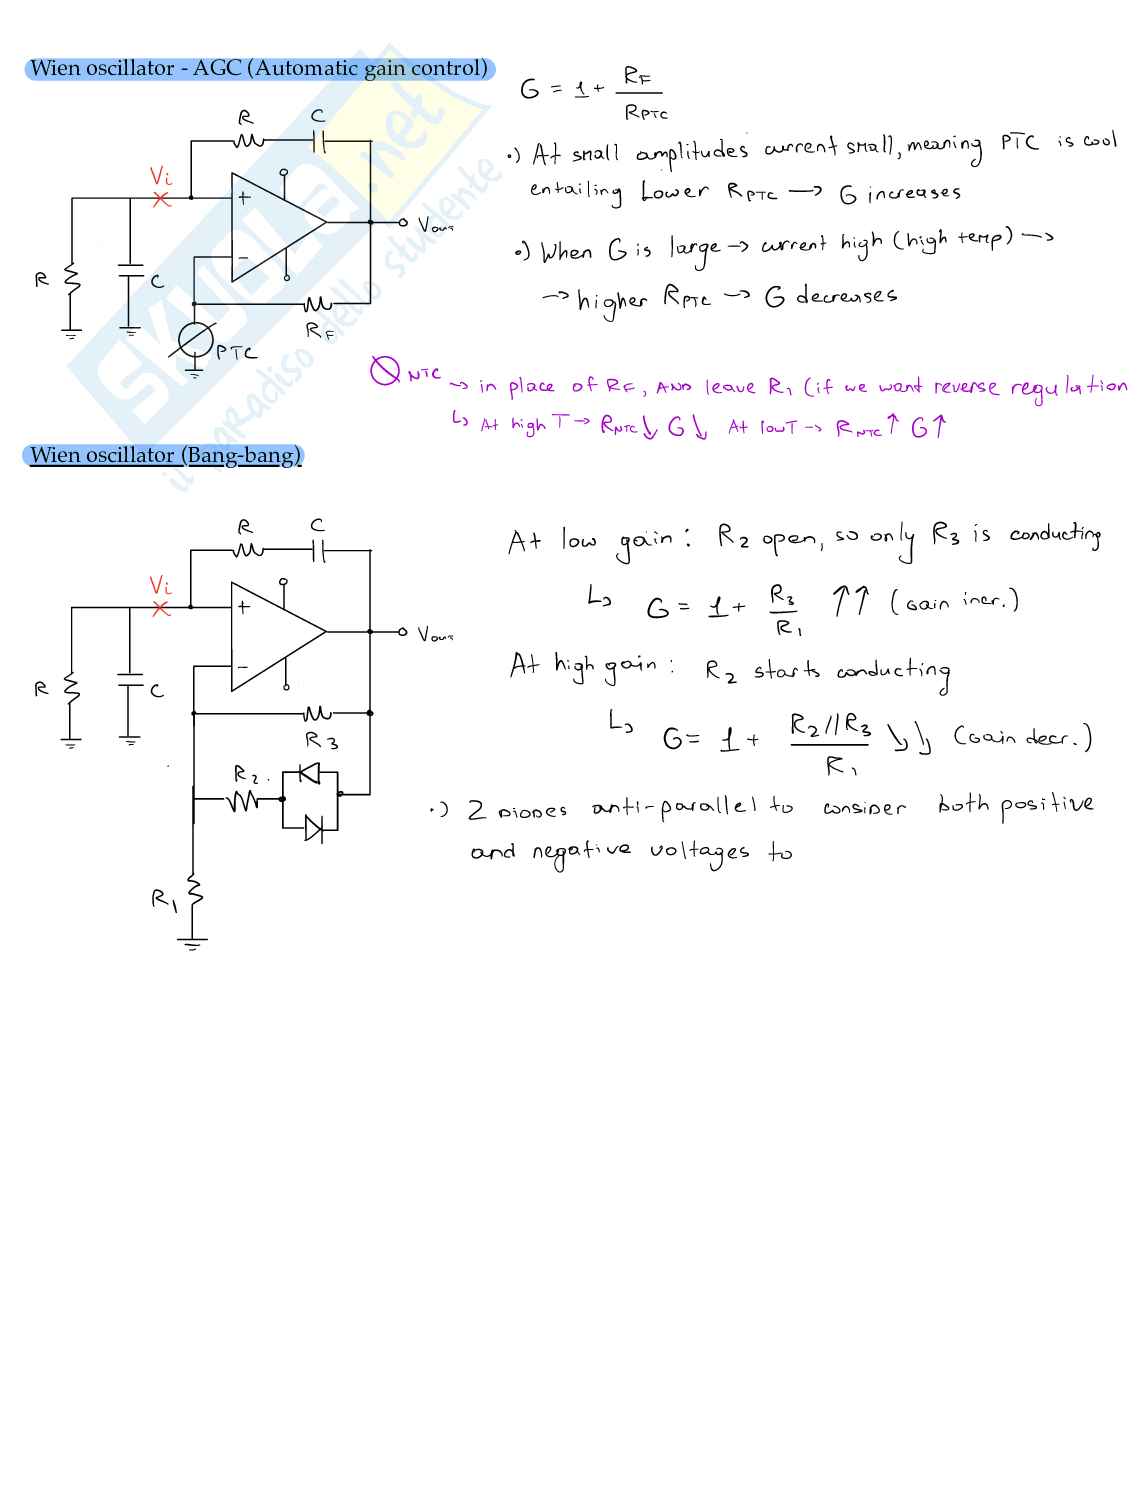 Wien oscillator - AGC (Automatic gain control)
G = 1 + RF / RPTC
R C
Vi
+
−
Vout
R C
RF
PTC
·) At small amplitudes current small, meaning PTC is cool
entailing Lower RPTC → G increases
·) When G is large → current high (high temp) →
→ higher RPTC → G decreases
NTC → in place of RF, AND leave R1 (if we want reverse regulation
↳ At high T → RNTC ↓ G ↓ At low T → RNTC ↑ G ↑
SKUOLA.net
il paradiso dello studente
Wien oscillator (Bang-bang)
R C
Vi
+
−
Vout
R C
R3
R2
R1
At low gain: R2 open, so only R3 is conducting
↳ G = 1 + R3 / R1 ↑↑ (Gain incr.)
At high gain: R2 starts conducting
↳ G = 1 + R2//R3 / R1 ↓↓ (Gain decr.)
·) 2 DIODES anti-parallel to consider both positive
and negative voltages to